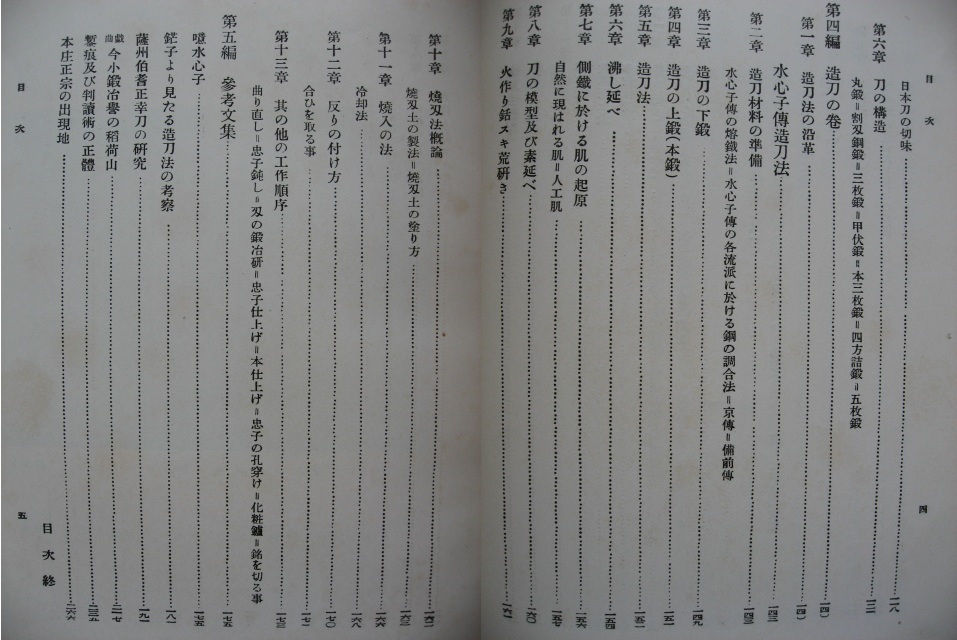 目次
四
日本刀の切味
一二八
第六章 刀の構造
一三一
丸鍛=割刄鋼鍛=三枚鍛=甲伏鍛=本三枚鍛=四方詰鍛=五枚鍛
第四編 造刀の卷
一四一
第一章 造刀法の沿革
一四一
水心子傳造刀法
一四三
第二章 造刀材料の準備
一四三
水心子傳の熔鐵法=水心子傳の各流派に於ける鋼の調合法=京傳=備前傳
第三章 造刀の下鍛
一四九
第四章 造刀の上鍛(本鍛)
一五一
第五章 造刀法
一五二
第六章 沸し延べ
一五四
第七章 側鐵に於ける肌の起原
一五六
自然に現はれる肌=人工肌
一五七
第八章 刀の模型及び素延べ
一六〇
第九章 火作り銛スキ荒研き
一六一
第十章 燒刄法概論
一六二
燒刄土の製法=燒刄土の塗り方
一六三
第十一章 燒入の法
一六六
冷却法
一六八
第十二章 反りの付け方
一七〇
合ひを取る事
一七二
第十三章 其の他の工作順序
一七三
曲り直し=忠子鈍し=刄の鍛冶研=忠子仕上げ=本仕上げ=忠子の孔穿け=化粧鑢=銘を切る事
第五編 參考文集
一七五
噫水心子
一七五
鋩子より見たる造刀法の考察
一八一
薩州伯耆正幸刀の研究
一九一
戯曲 今小鍛冶譽の稻荷山
二一七
鏨痕及び判讀術の正體
本庄正宗の出現地
二六六
目次終
目次
五